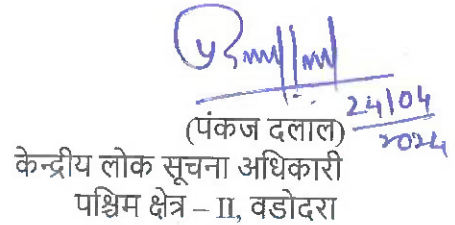 24/04
2024
(पंकज दलाल)
केन्द्रीय लोक सूचना अधिकारी
पश्चिम क्षेत्र – II, वडोदरा